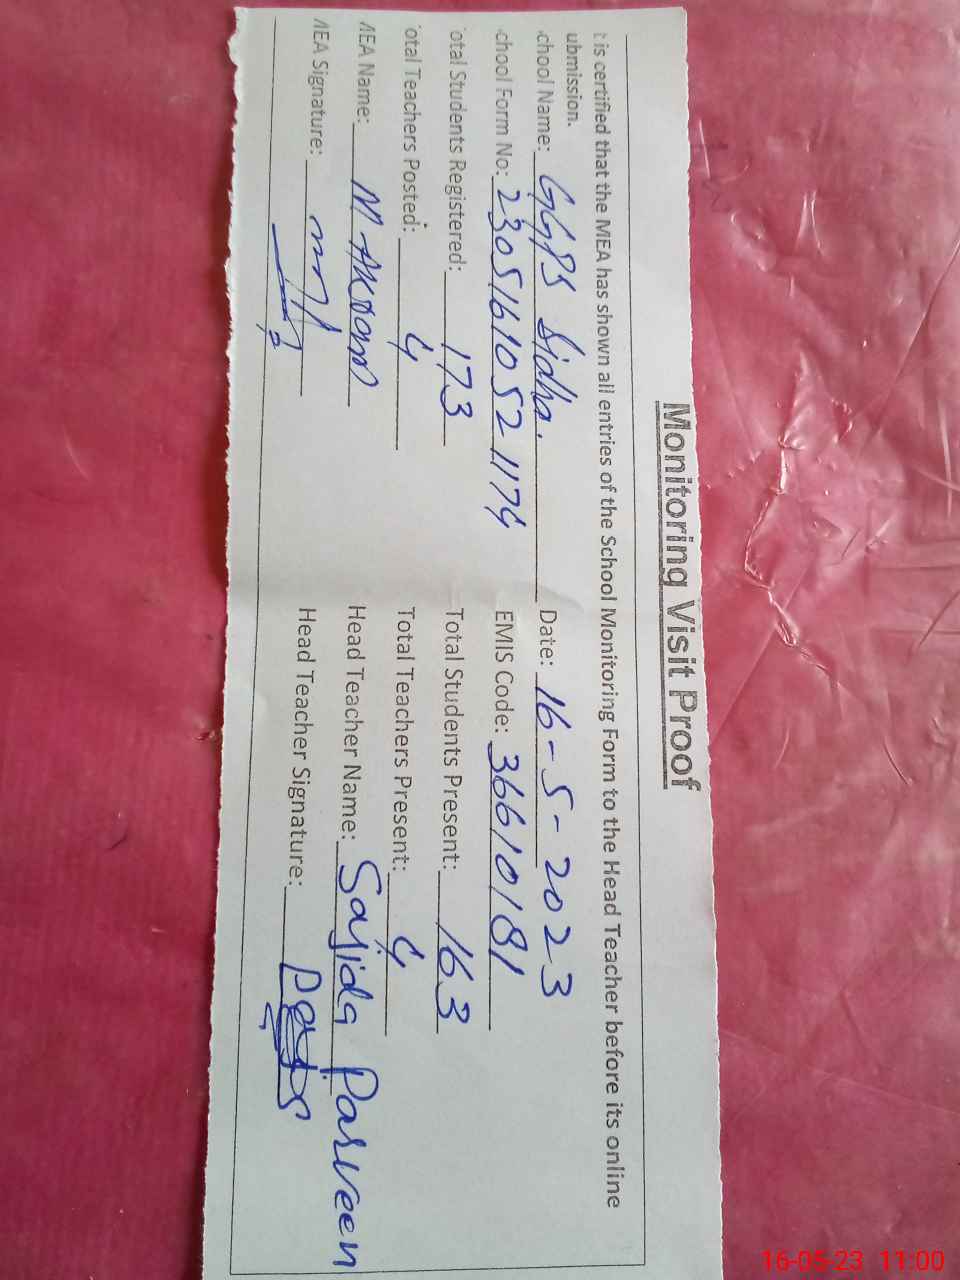 Monitoring Visit Proof
t is certified that the MEA has shown all entries of the School Monitoring Form to the Head Teacher before its online
ubmission.
chool Name: GGPS Sidha. Date: 16-5-2023
chool Form No: 23051610521174 EMIS Code: 36610181
otal Students Registered: 173 Total Students Present: 163
otal Teachers Posted: 4 Total Teachers Present: 4
MEA Name: M Akram Head Teacher Name: Sajida Parveen
MEA Signature: Head Teacher Signature:
16-05-23 11:00